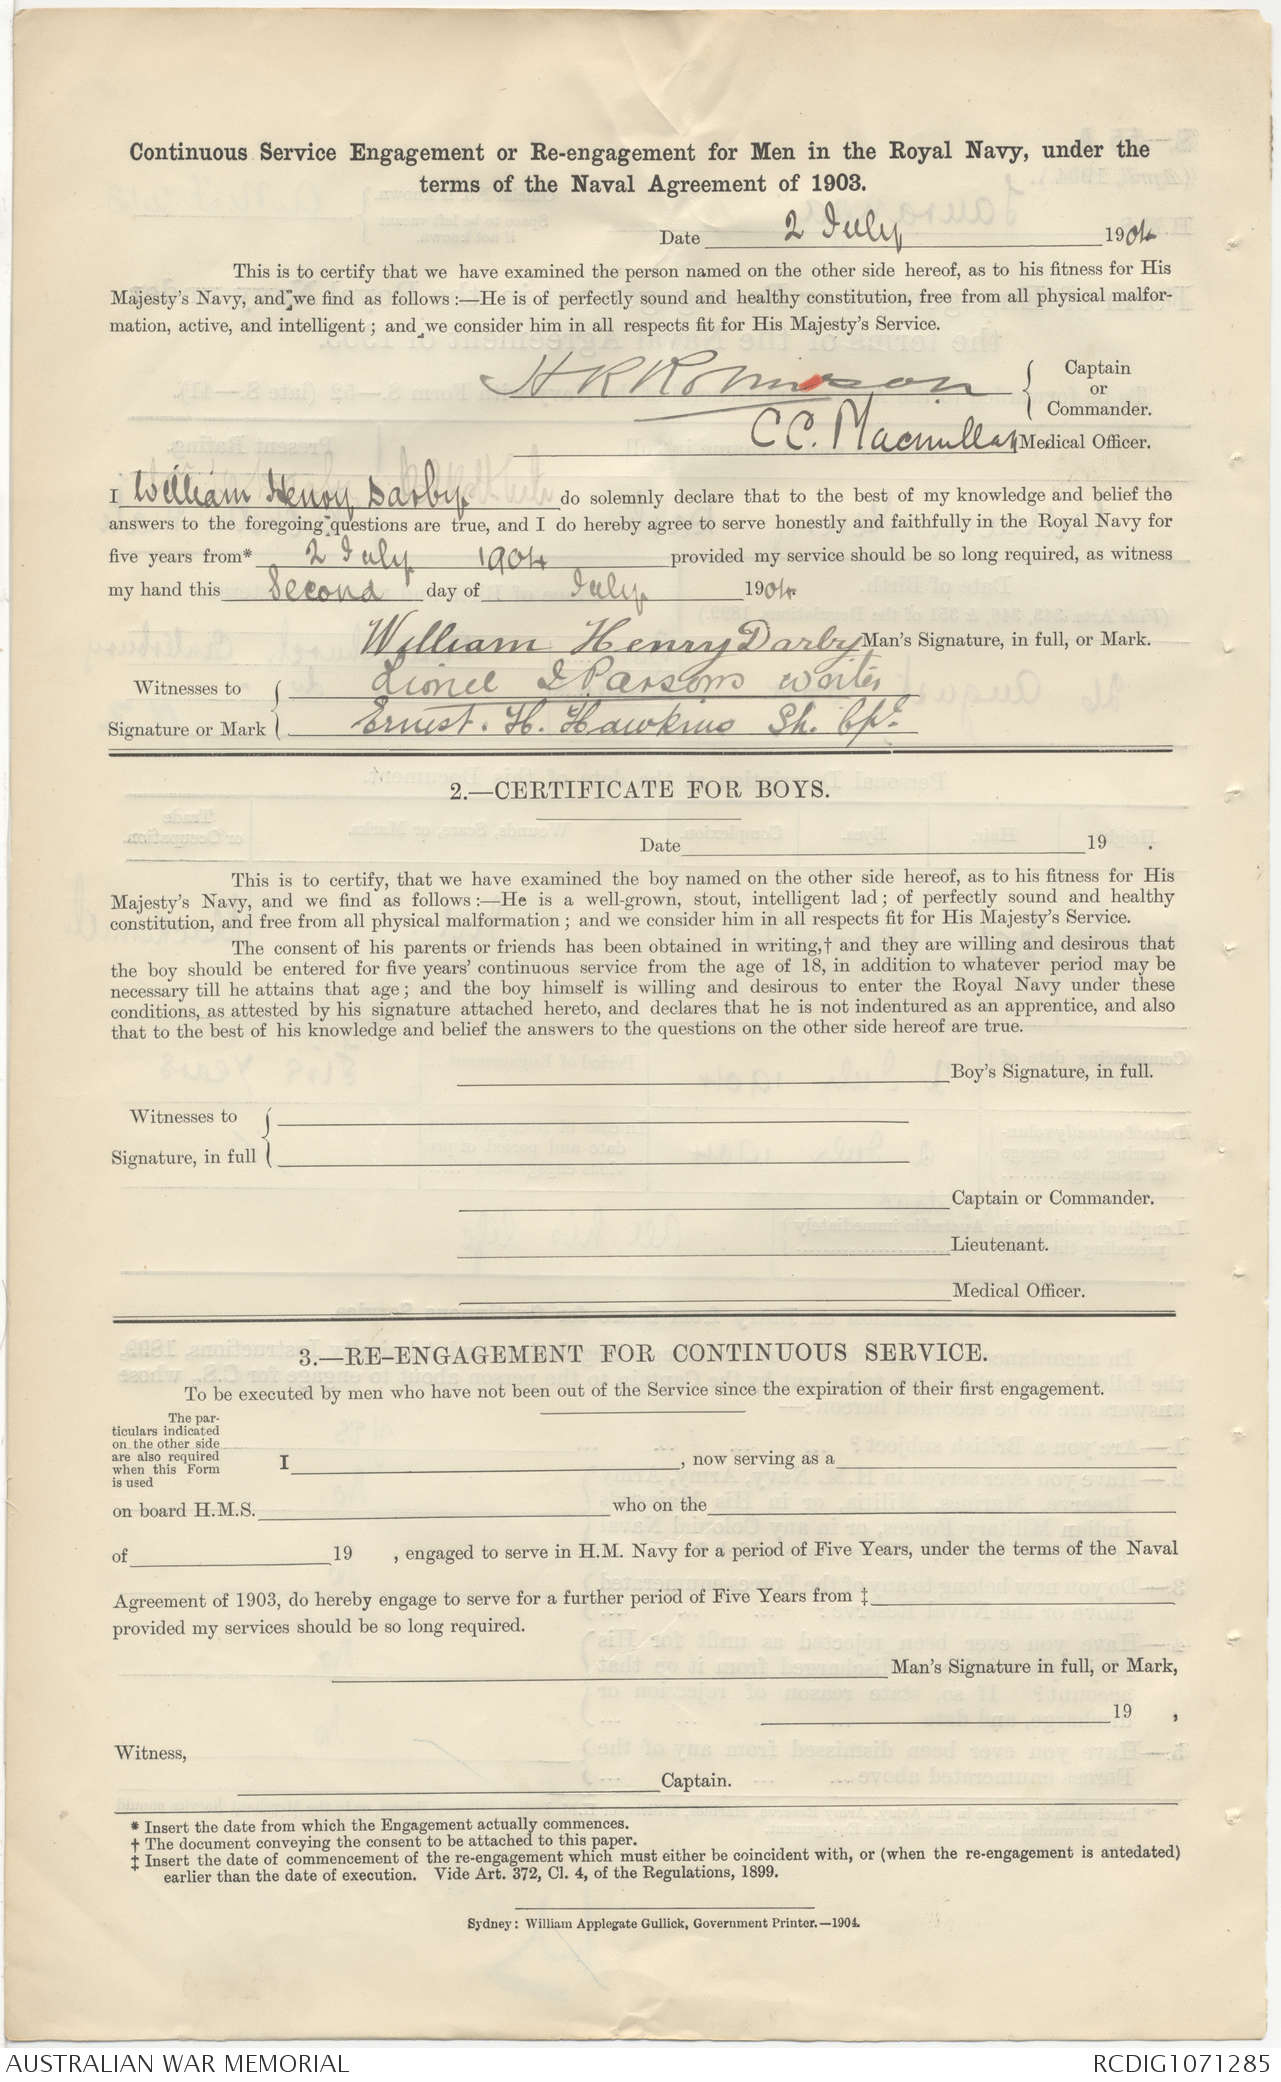 Continuous Service Engagement or Re-engagement for Men in the Royal Navy, under the
terms of the Naval Agreement of 1903.
Date 2 July 1904
This is to certify that we have examined the person named on the other side hereof, as to his fitness for His
Majesty's Navy, and we find as follows:—He is of perfectly sound and healthy constitution, free from all physical malfor-
mation, active, and intelligent; and we consider him in all respects fit for His Majesty's Service.
H R Robinson Captain
or
Commander.
C C. Macmillan Medical Officer.
I William Henry Darby do solemnly declare that to the best of my knowledge and belief the
answers to the foregoing questions are true, and I do hereby agree to serve honestly and faithfully in the Royal Navy for
five years from* 2 July 1904 provided my service should be so long required, as witness
my hand this Second day of July 1904.
William Henry Darby Man's Signature, in full, or Mark.
Witnesses to Lionel I Parsons writer
Signature or Mark Ernest. H. Hawkins Sh. Cpl.
2.—CERTIFICATE FOR BOYS.
Date 19 .
This is to certify, that we have examined the boy named on the other side hereof, as to his fitness for His
Majesty's Navy, and we find as follows:—He is a well-grown, stout, intelligent lad; of perfectly sound and healthy
constitution, and free from all physical malformation; and we consider him in all respects fit for His Majesty's Service.
The consent of his parents or friends has been obtained in writing,† and they are willing and desirous that
the boy should be entered for five years' continuous service from the age of 18, in addition to whatever period may be
necessary till he attains that age; and the boy himself is willing and desirous to enter the Royal Navy under these
conditions, as attested by his signature attached hereto, and declares that he is not indentured as an apprentice, and also
that to the best of his knowledge and belief the answers to the questions on the other side hereof are true.
Boy's Signature, in full.
Witnesses to
Signature, in full
Captain or Commander.
Lieutenant.
Medical Officer.
3.—RE-ENGAGEMENT FOR CONTINUOUS SERVICE.
To be executed by men who have not been out of the Service since the expiration of their first engagement.
The par-
ticulars indicated
on the other side
are also required
when this Form
is used
I , now serving as a
on board H.M.S. who on the
of 19 , engaged to serve in H.M. Navy for a period of Five Years, under the terms of the Naval
Agreement of 1903, do hereby engage to serve for a further period of Five Years from ‡
provided my services should be so long required.
Man's Signature in full, or Mark,
19 ,
Witness,
Captain.
* Insert the date from which the Engagement actually commences.
† The document conveying the consent to be attached to this paper.
‡ Insert the date of commencement of the re-engagement which must either be coincident with, or (when the re-engagement is antedated)
earlier than the date of execution. Vide Art. 372, Cl. 4, of the Regulations, 1899.
Sydney: William Applegate Gullick, Government Printer.—1904.
AUSTRALIAN WAR MEMORIAL
RCDIG1071285